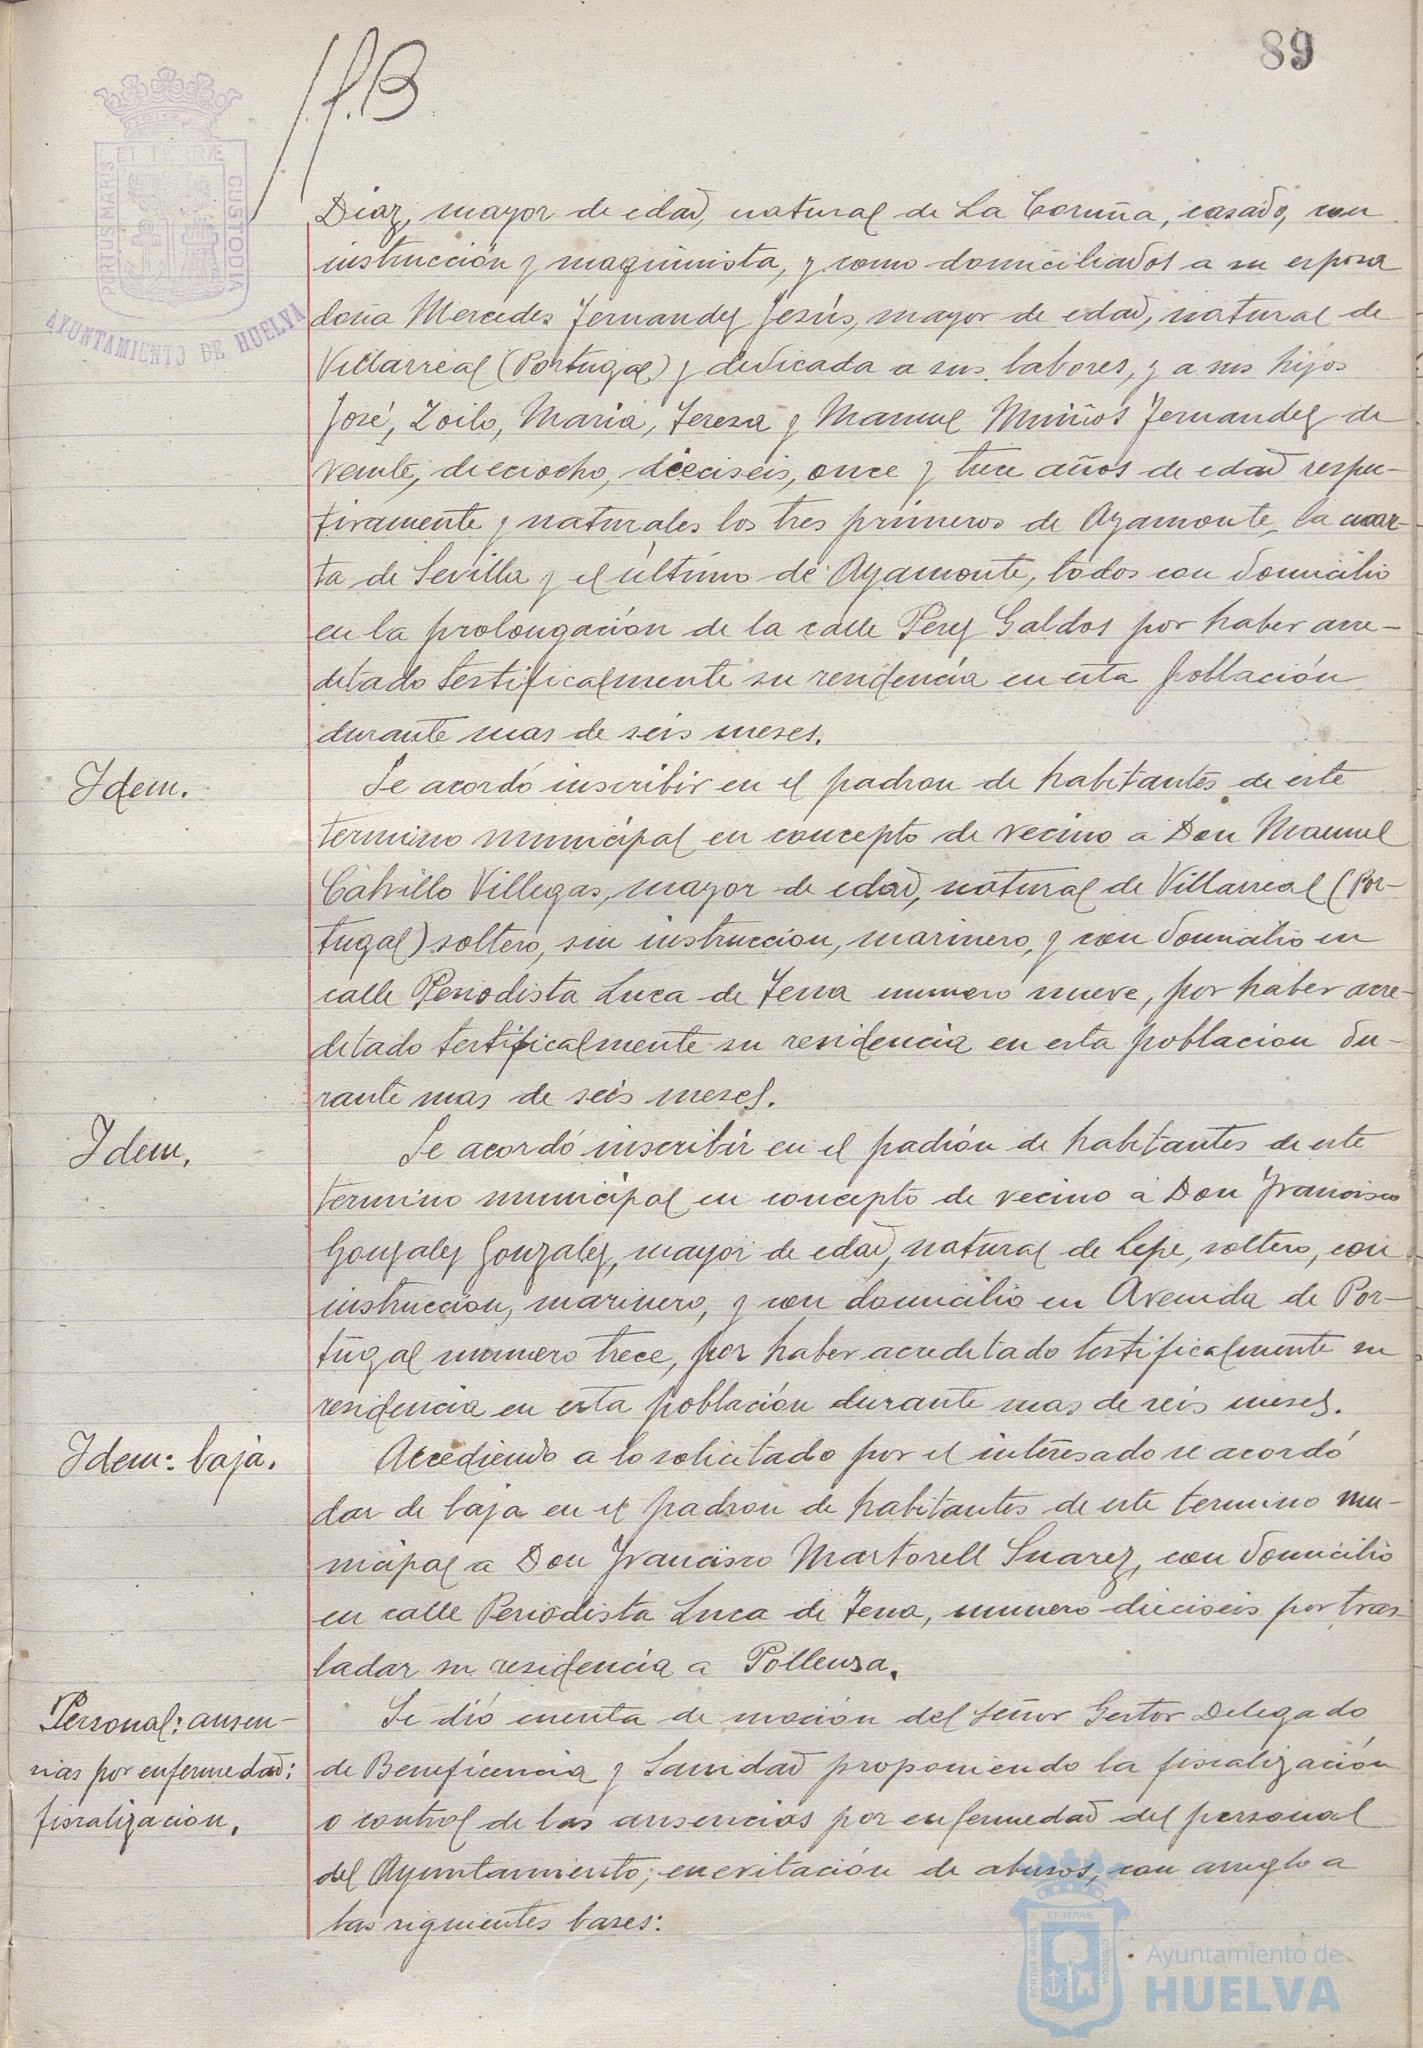 89
ET TERRÆ
PORTUS MARIS
CUSTODIA
AYUNTAMIENTO DE HUELVA
Diaz, mayor de edad, natural de La Coruña, casado, con
instrucción y maquinista, y como domiciliados a su esposa
doña Mercedes Fernandez Jesús, mayor de edad, natural de
Villarreal (Portugal) y dedicada a sus labores, y a sus hijos
José, Zoilo, Maria, Teresa y Manuel Muiños Fernandez de
veinte, dieciocho, dieciseis, once y trece años de edad respec-
tivamente y naturales los tres primeros de Ayamonte, la cuar-
ta de Sevilla y el último de Ayamonte, todos con domicilio
en la prolongación de la calle Perez Galdos por haber acre-
ditado testificalmente su residencia en esta población
durante mas de seis meses.
Idem.
Se acordó inscribir en el padron de habitantes de este
termino municipal en concepto de vecino a Don Manuel
Calvillo Villegas, mayor de edad, natural de Villarreal (Por-
tugal) soltero, sin instruccion, marinero, y con domicilio en
calle Periodista Luca de Tena numero nueve, por haber acre-
ditado testificalmente su residencia en esta poblacion du-
rante mas de seis meses.
Idem.
Se acordó inscribir en el padrón de habitantes de este
termino municipal en concepto de vecino a Don Francisco
Gonzalez Gonzalez, mayor de edad, natural de Lepe, soltero, con
instruccion, marinero, y con domicilio en Avenida de Por-
tugal numero trece, por haber acreditado testificalmente su
residencia en esta población durante mas de seis meses.
Idem: baja.
Accediendo a lo solicitado por el interesado se acordó
dar de baja en el padron de habitantes de este termino mu-
nicipal a Don Francisco Martorell Suarez, con domicilio
en calle Periodista Luca de Tena, numero dieciseis por tras-
ladar su residencia a Pollensa.
Personal: ausen-
cias por enfermedad:
fiscalizacion.
Se dió cuenta de moción del señor Gestor Delegado
de Beneficencia y Sanidad proponiendo la fiscalización
o control de las ausencias por enfermedad del personal
del Ayuntamiento, en evitación de abusos, con arreglo a
las siguientes bases:
ET TERRÆ
PORTUS MARIS
CUSTODIA
Ayuntamiento de
HUELVA